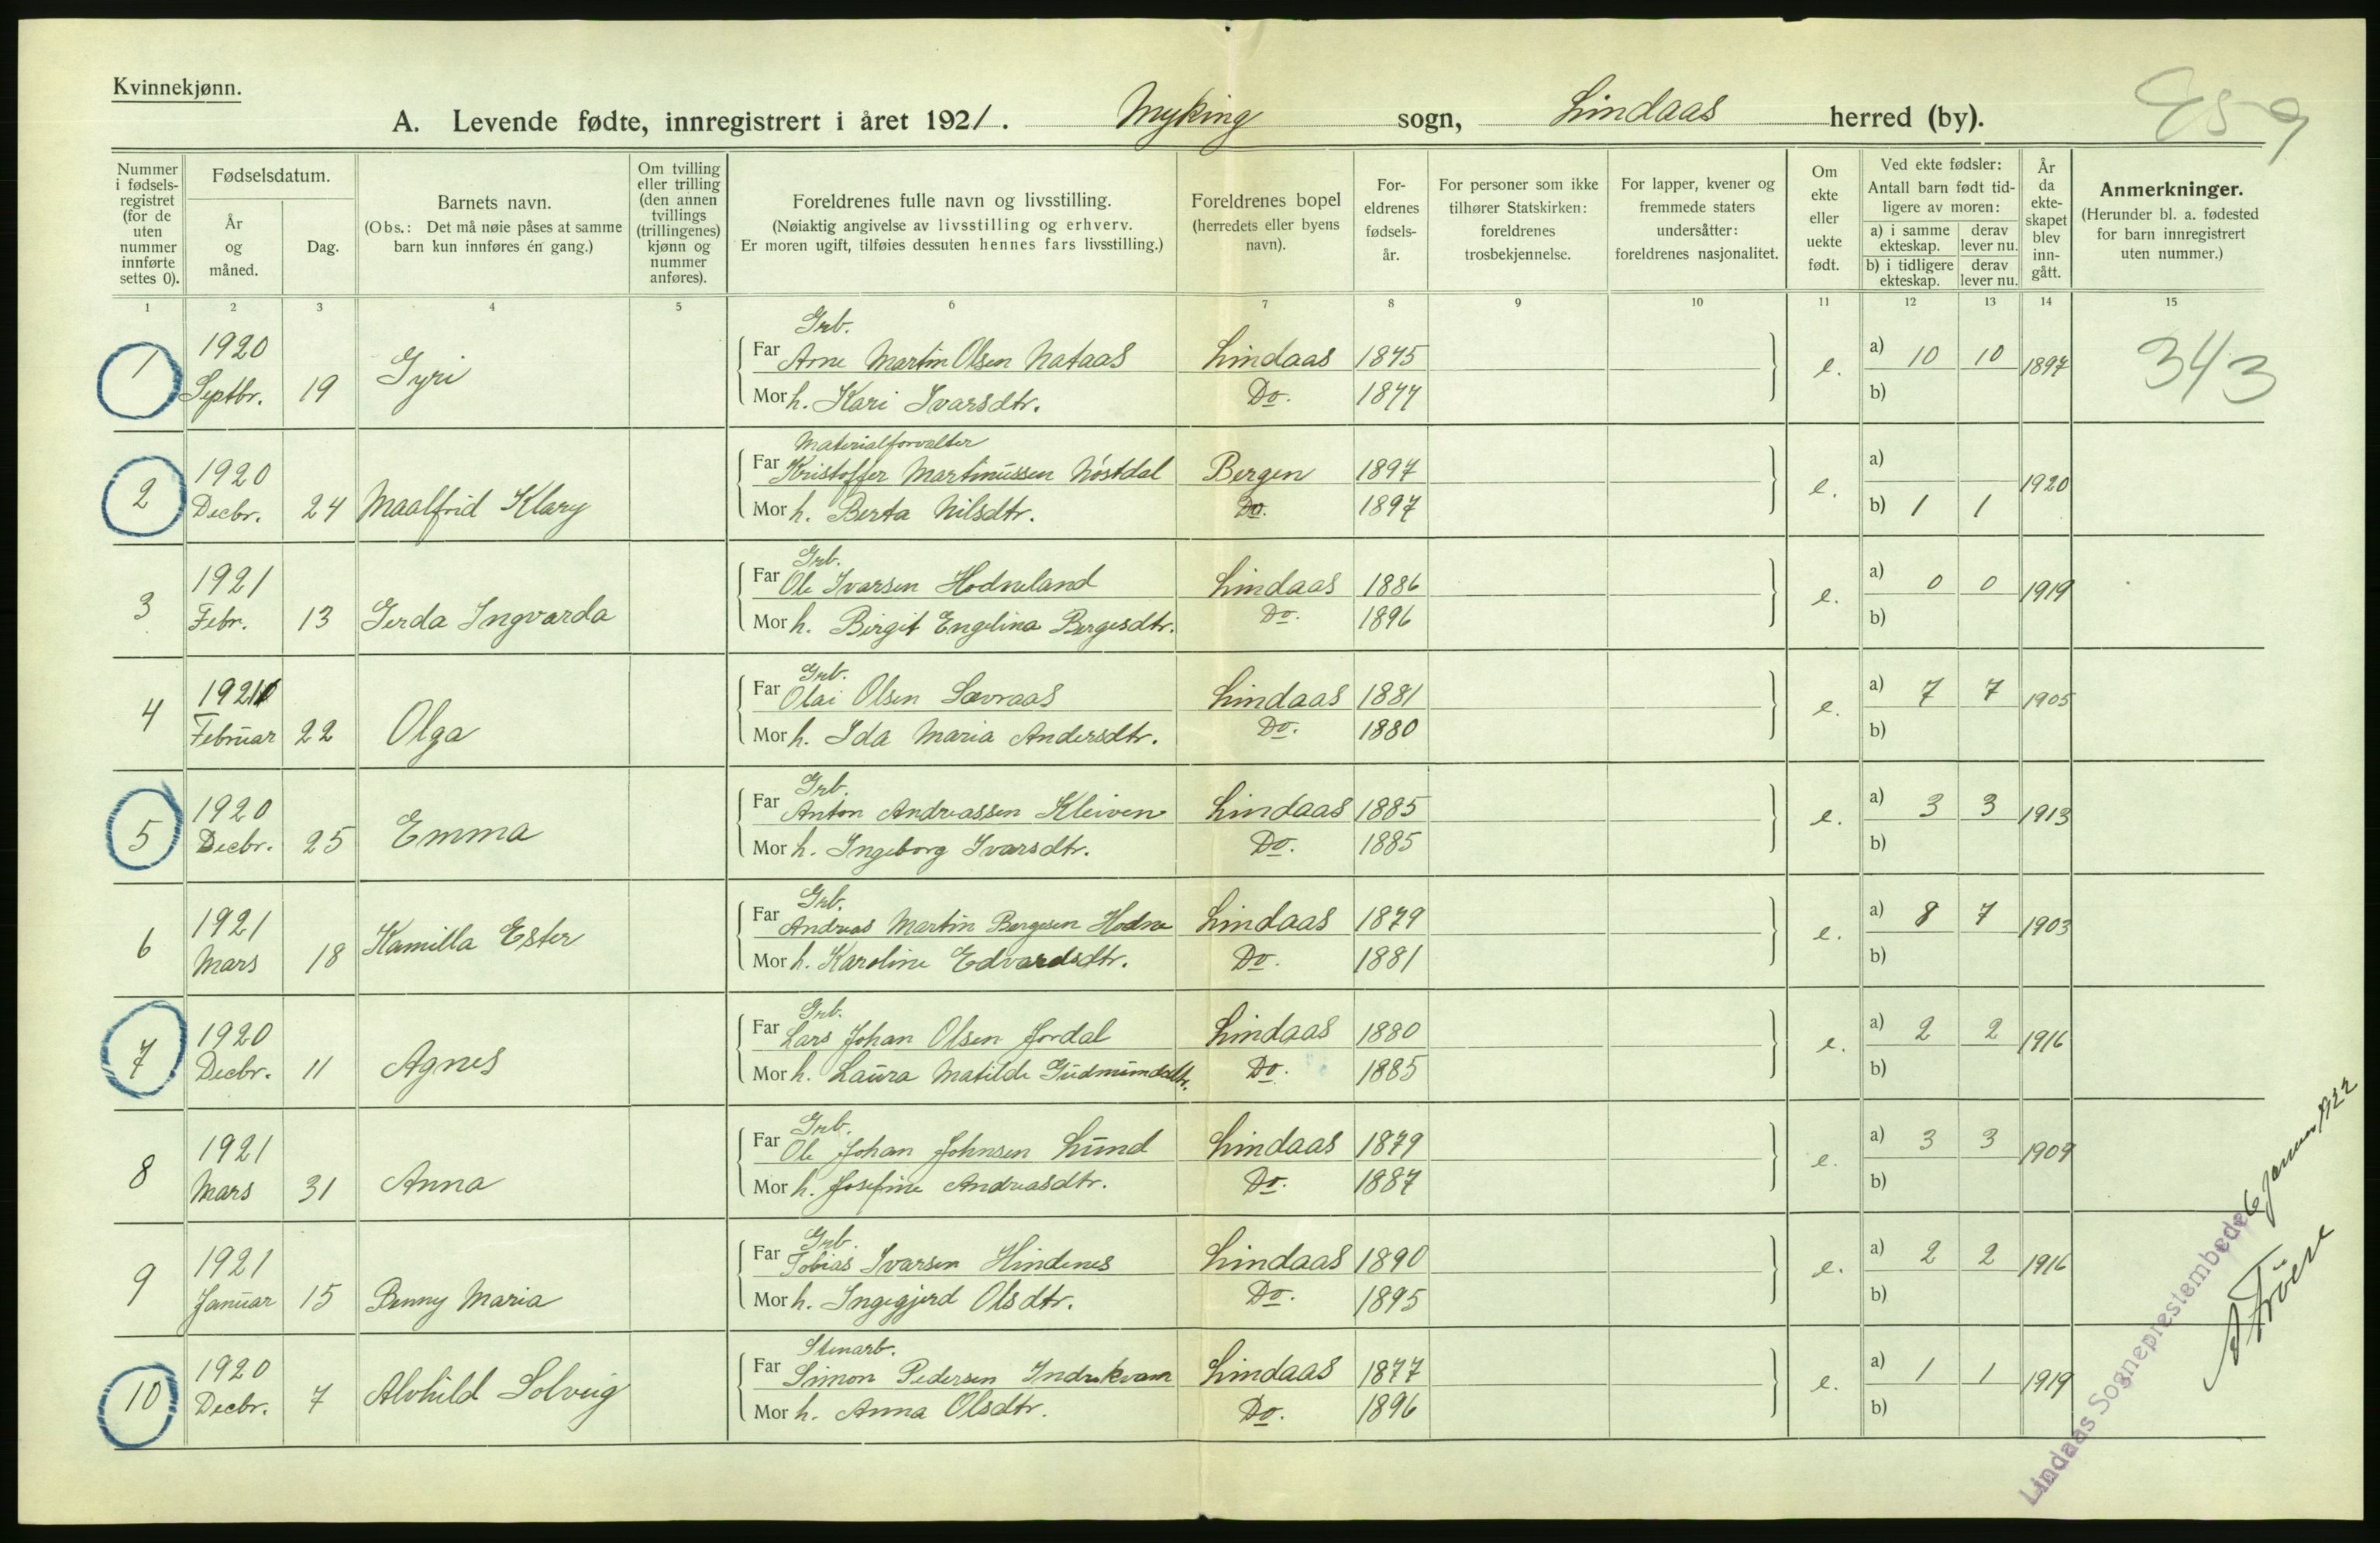 Kvinnekjønn.
A. Levende fødte, innregistrert i året 1921. Myking sogn, Lindaas herred (by).
Nummer i fødsels-registret (for de uten nummer innførte settes 0).
Fødselsdatum.
År og måned.
Dag.
Barnets navn.
(Obs.: Det må nøie påses at samme barn kun innføres én gang.)
Om tvilling eller trilling (den annen tvillings (trillingenes) kjønn og nummer anføres).
Foreldrenes fulle navn og livsstilling.
(Nøiaktig angivelse av livsstilling og erhverv. Er moren ugift, tilføies dessuten hennes fars livsstilling.)
Foreldrenes bopel (herredets eller byens navn).
For-eldrenes fødsels-år.
For personer som ikke tilhører Statskirken: foreldrenes trosbekjennelse.
For lapper, kvener og fremmede staters undersåtter: foreldrenes nasjonalitet.
Om ekte eller uekte født.
Ved ekte fødsler:
Antall barn født tid-ligere av moren:
a) i samme ekteskap. derav lever nu.
b) i tidligere ekteskap. derav lever nu.
År da ekte-skapet blev inn-gått.
Anmerkninger.
(Herunder bl. a. fødested for barn innregistrert uten nummer.)
1 2 3 4 5 6 7 8 9 10 11 12 13 14 15
Grb.
1 1920 Septbr. 19 Gyri Far Arne Martin Olsen Nataas Lindaas 1875 e. a) 10 10 1897 343
Mor h. Kari Ivarsdtr. Do. 1877 b)
Materialforvalter
2 1920 Decbr. 24 Maalfrid Klary Far Kristoffer Martinussen Nöstdal Bergen 1897 e. a) 1920
Mor h. Berta Nilsdtr. Do. 1897 b) 1 1
Grb.
3 1921 Febr. 13 Gerda Ingvarda Far Ole Ivarsen Hodneland Lindaas 1886 e. a) 0 0 1919
Mor h. Birgit Engelina Bergesdtr. Do. 1896 b)
Grb.
4 1921 Februar 22 Olga Far Olai Olsen Sævraas Lindaas 1881 e. a) 7 7 1905
Mor h. Ida Maria Andersdtr. Do. 1880 b)
Grb.
5 1920 Decbr. 25 Emma Far Anton Andreassen Kleiven Lindaas 1885 e. a) 3 3 1913
Mor h. Ingeborg Ivarsdtr. Do. 1885 b)
Grb.
6 1921 Mars 18 Kamilla Ester Far Andreas Martin Bergesen Hodne Lindaas 1879 e. a) 8 7 1903
Mor h. Karoline Edvardsdtr. Do. 1881 b)
Grb.
7 1920 Decbr. 11 Agnes Far Lars Johan Olsen Fordal Lindaas 1880 e. a) 2 2 1916
Mor h. Laura Matilde Gudmundsdtr. Do. 1885 b)
Grb.
8 1921 Mars 31 Anna Far Ole Johan Johnsen Lund Lindaas 1879 e. a) 3 3 1909
Mor h. Josefine Andreasdtr. Do. 1887 b)
Grb.
9 1921 Januar 15 Benny Maria Far Tobias Ivarsen Hindenes Lindaas 1890 e. a) 2 2 1916
Mor h. Ingegjerd Olsdtr. Do. 1895 b)
Stenarb.
10 1920 Decbr. 7 Alvhild Solveig Far Simon Pedersen Indrekvam Lindaas 1877 e. a) 1 1 1919
Mor h. Anna Olsdtr. Do. 1896 b)
Lindaas Sogneprestembede 6 Januar 1922